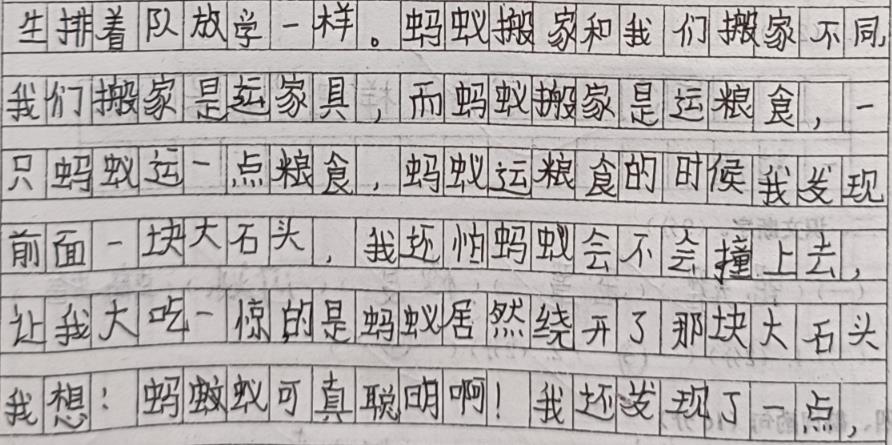 生排着队放学一样。蚂蚁搬家和我们搬家不同,
我们搬家是运家具,而蚂蚁搬家是运粮食,一
只蚂蚁运一点粮食,蚂蚁运粮食的时候我发现
前面一块大石头,我还怕蚂蚁会不会撞上去,
让我大吃一惊的是蚂蚁居然绕开了那块大石头
我想:蚂蚁蚁可真聪明啊!我还发现了一点,